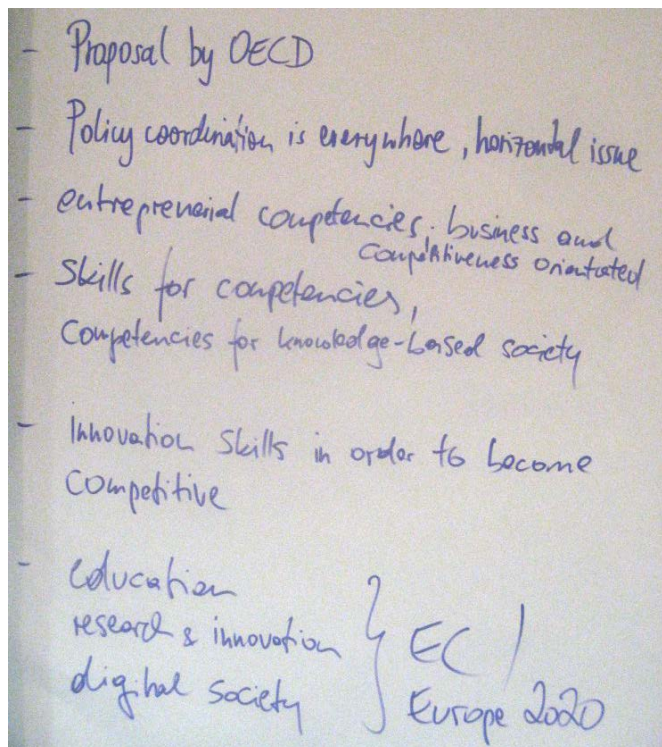 - Proposal by OECD
- Policy coordination is everywhere, horizontal issue
- entreprenarial competencies, business and
competitiveness orientated
- Skills for competencies,
Competencies for knowledge-based society
- Innovation skills in order to become
competitive
- education
research & innovation
digital society
} EC /
Europe 2020